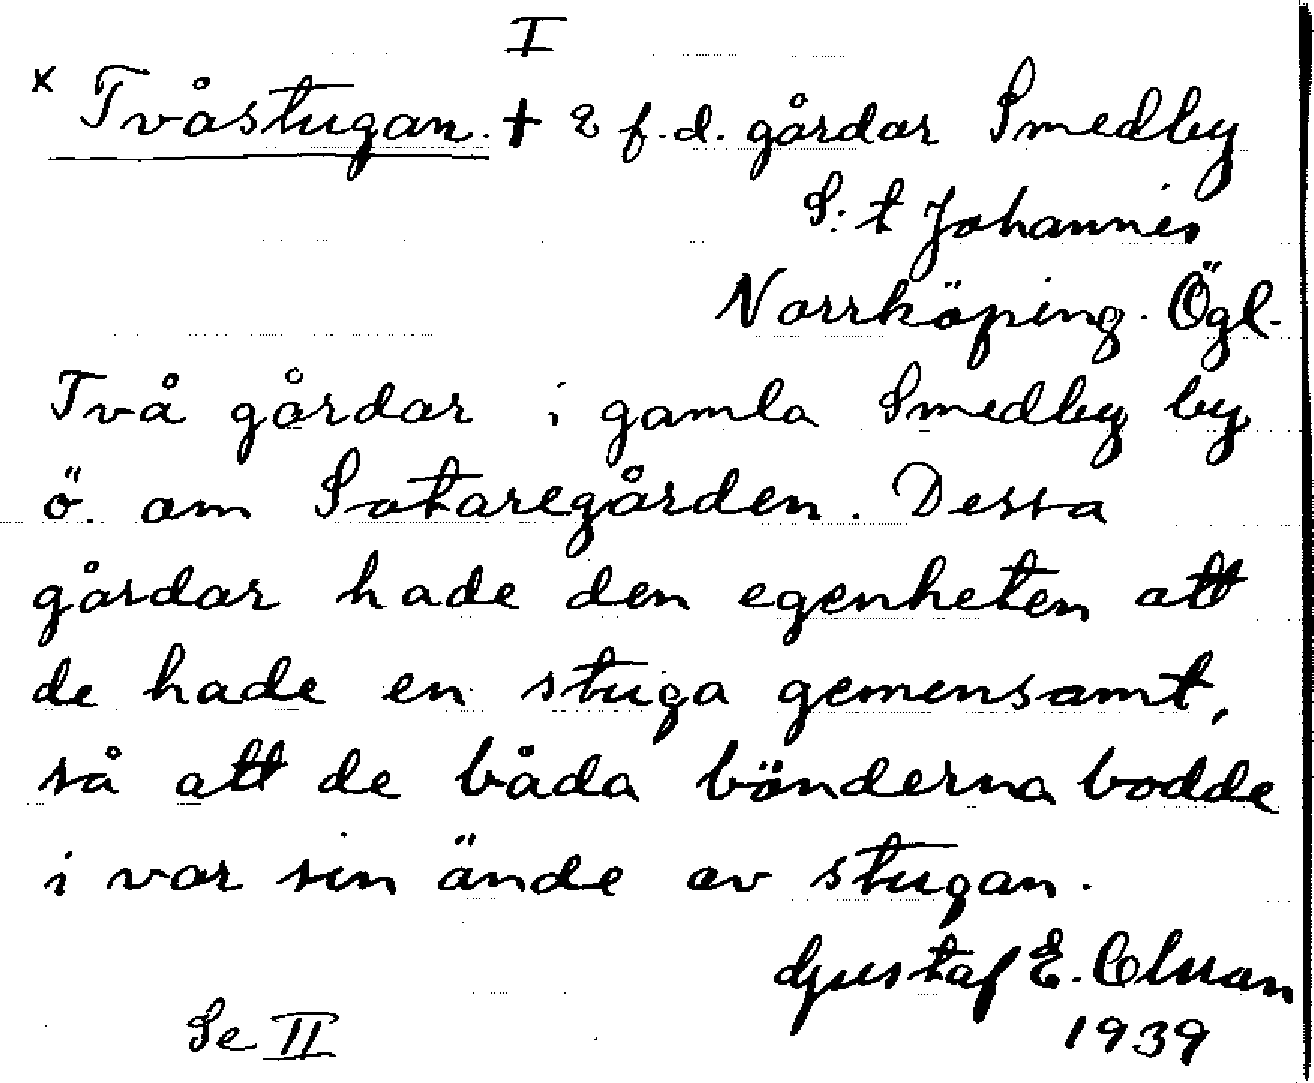 I
x Tvåstugan. + 2 f.d. gårdar Smedby
S:t Johannes
Norrköping. Ögl.
Två gårdar i gamla Smedby by
ö. om Sotaregården. Dessa
gårdar hade den egenheten att
de hade en stuga gemensamt,
så att de båda bönderna bodde
i var sin ände av stugan.
Gustaf E.
1939
Se II